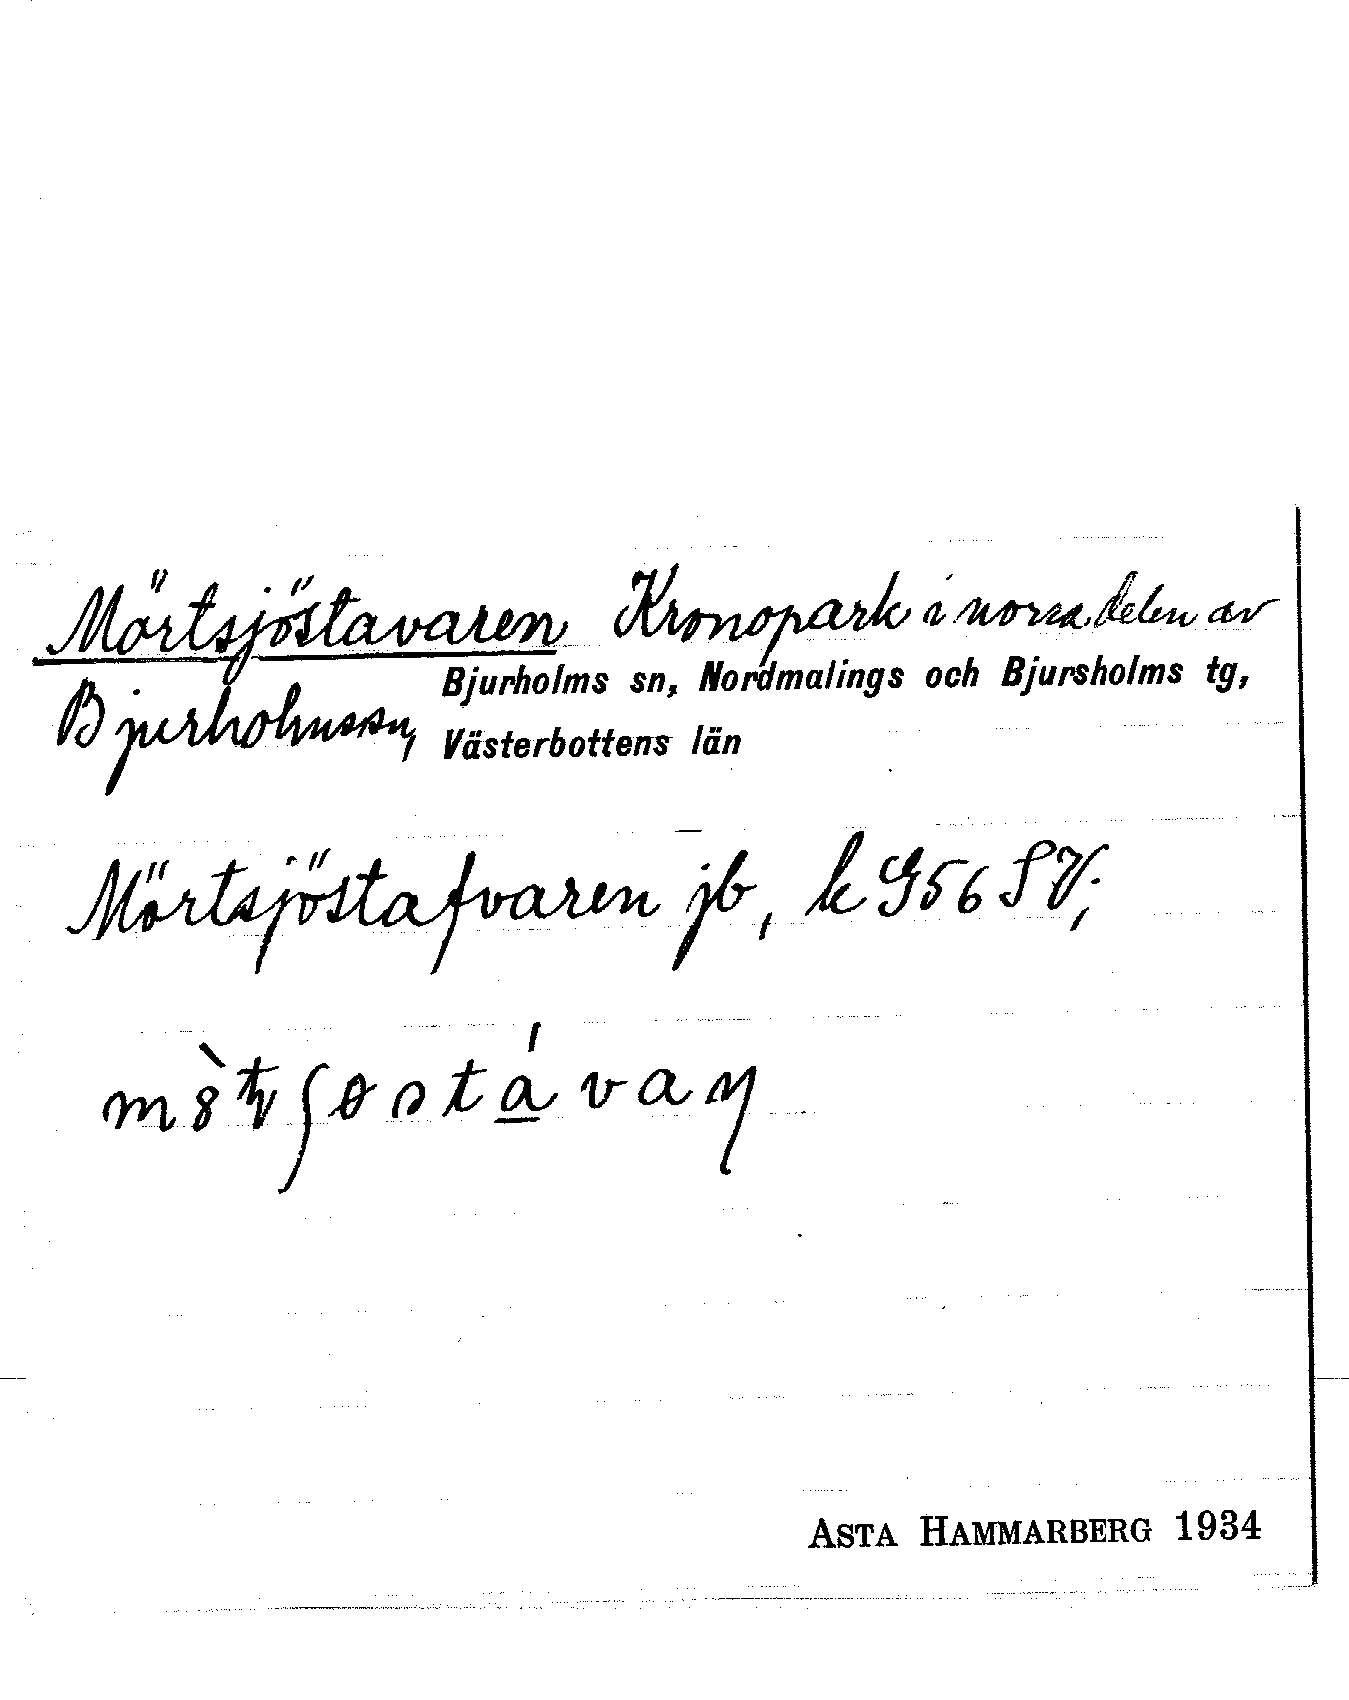 Mörtsjöstavaren Kronopark i norra delen av
Bjurholmssn, Bjurholms sn, Nordmalings och Bjursholms tg,
Västerbottens län
Mörtsjöstafvaren jb, k G56 SV;
ASTA HAMMARBERG 1934